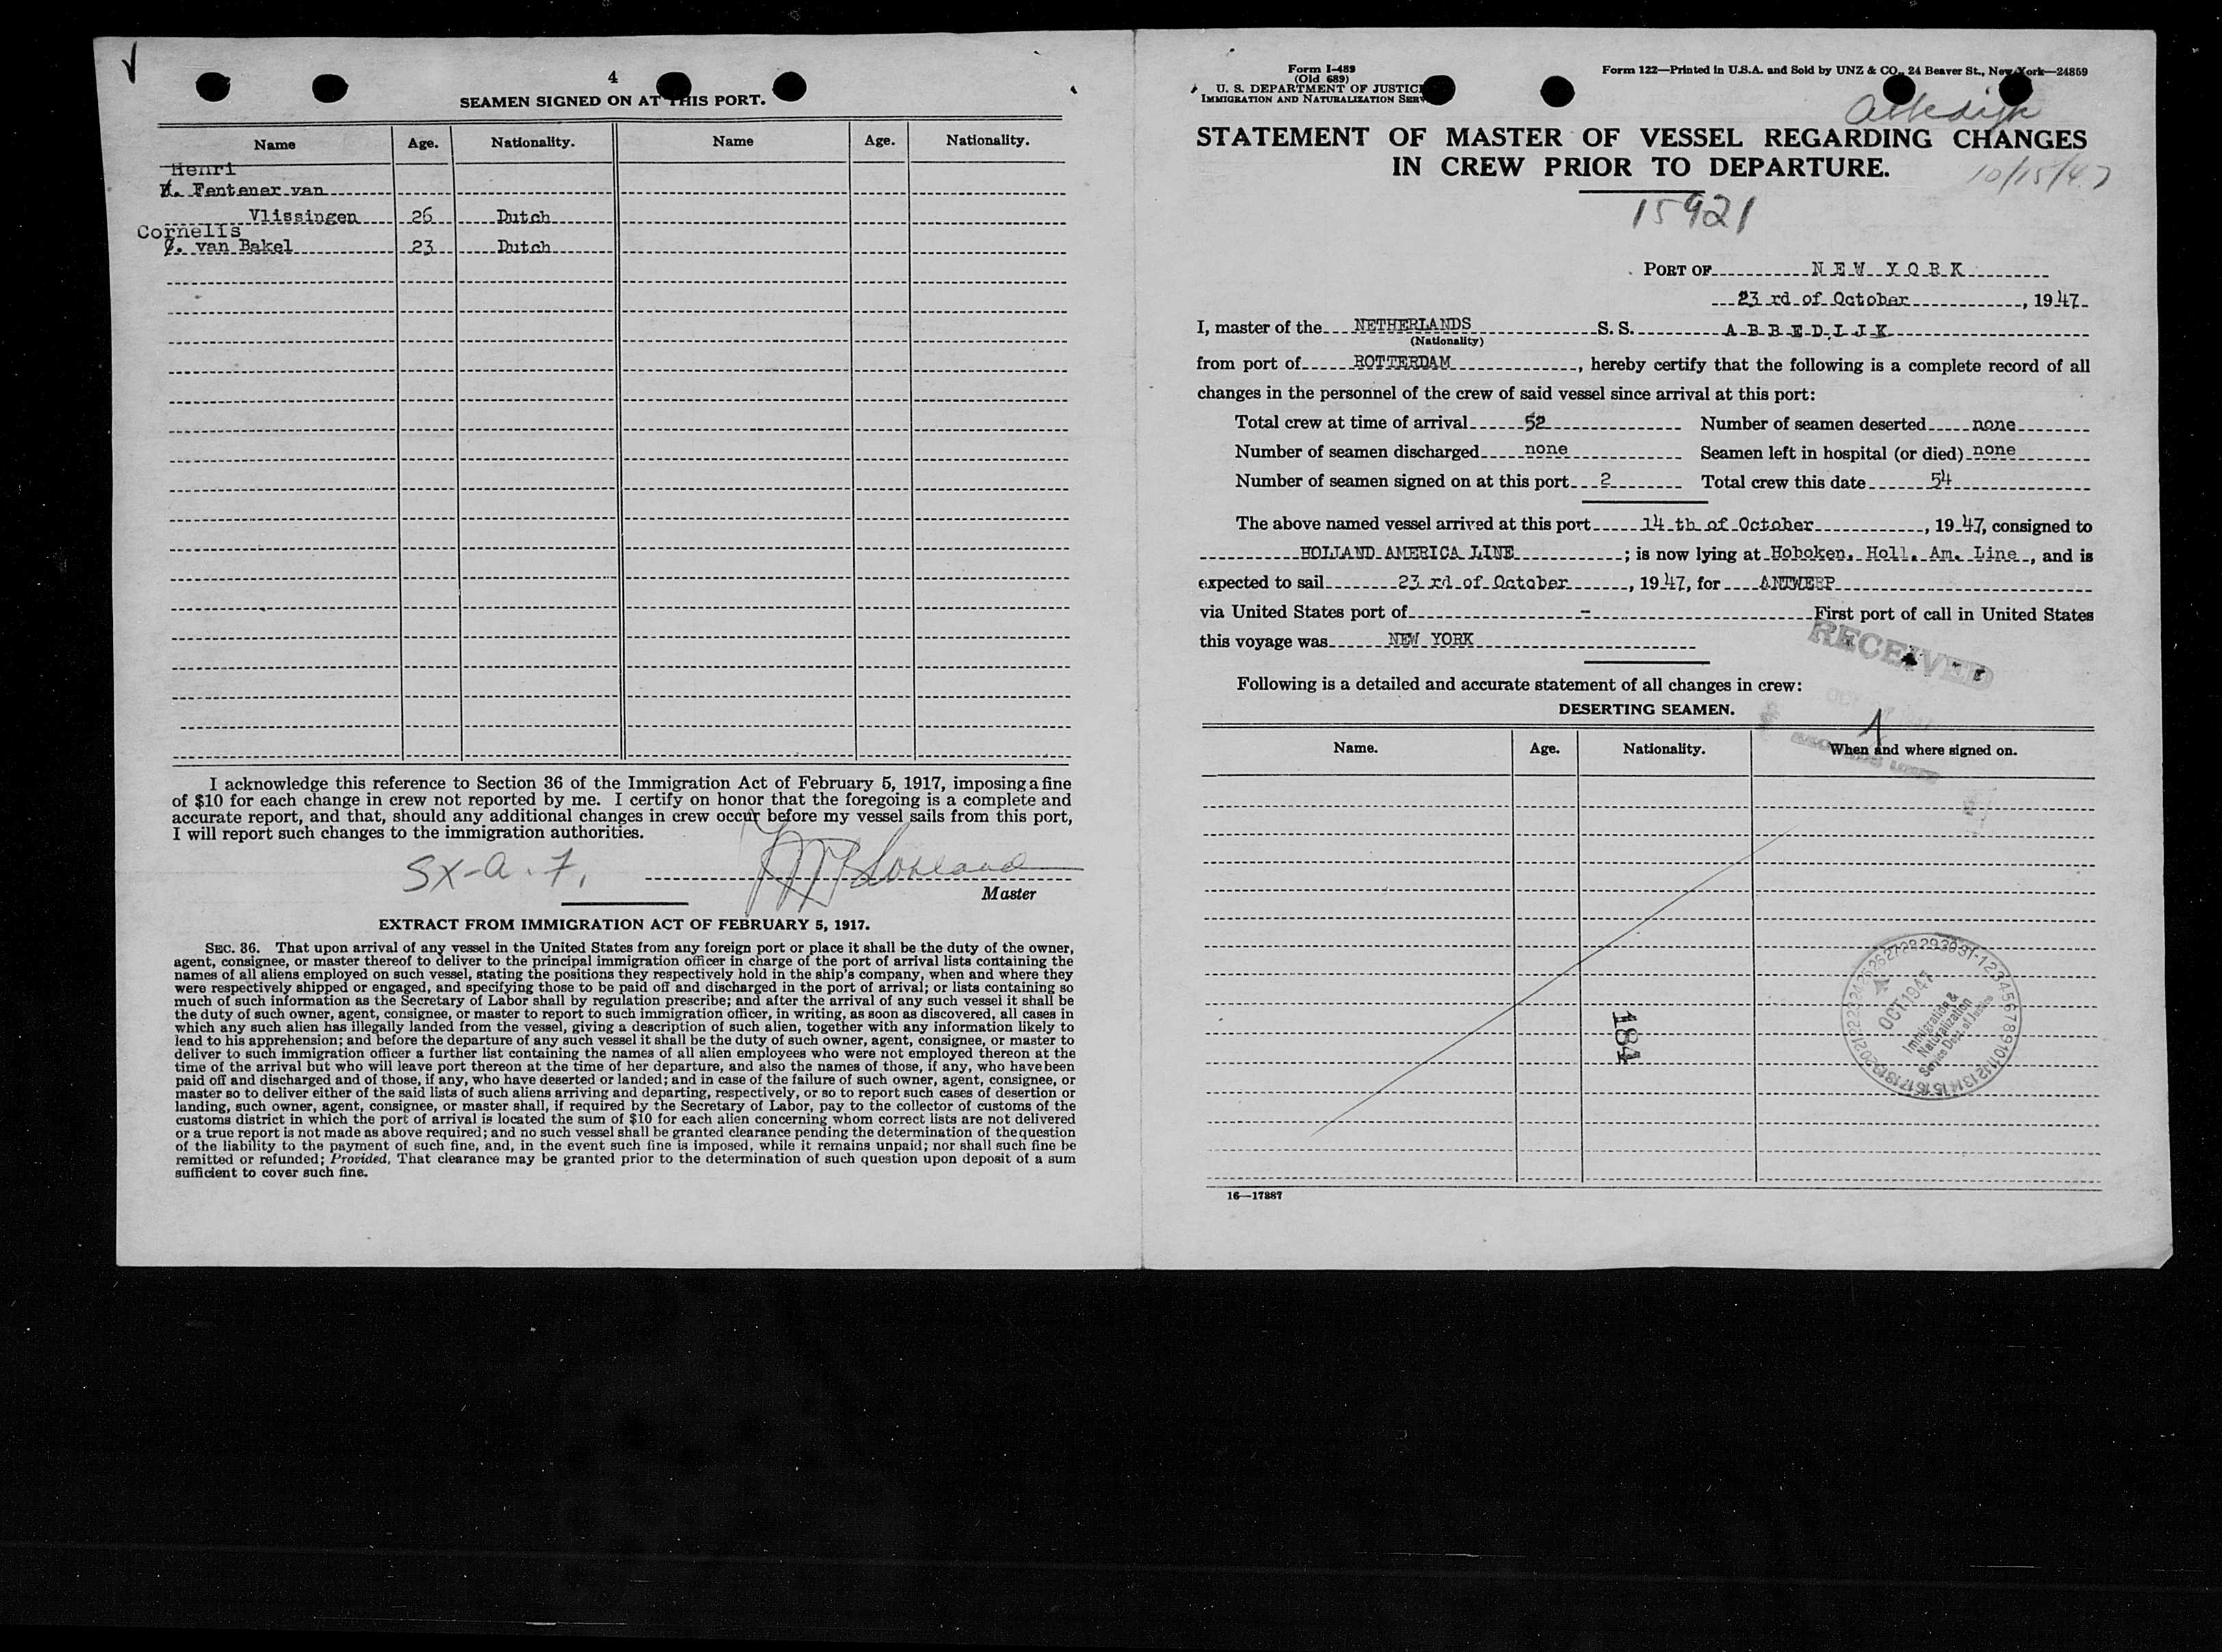 4
SEAMEN SIGNED ON AT THIS PORT.
Name Age. Nationality. Name Age. Nationality.
Henri
H. Fentener van
Vlissingen 26 Dutch
Cornelis
C. van Bakel 23 Dutch
I acknowledge this reference to Section 36 of the Immigration Act of February 5, 1917, imposing a fine
of $10 for each change in crew not reported by me. I certify on honor that the foregoing is a complete and
accurate report, and that, should any additional changes in crew occur before my vessel sails from this port,
I will report such changes to the immigration authorities.
SX-a. 7.
Master
EXTRACT FROM IMMIGRATION ACT OF FEBRUARY 5, 1917.
SEC. 36. That upon arrival of any vessel in the United States from any foreign port or place it shall be the duty of the owner,
agent, consignee, or master thereof to deliver to the principal immigration officer in charge of the port of arrival lists containing the
names of all aliens employed on such vessel, stating the positions they respectively hold in the ship's company, when and where they
were respectively shipped or engaged, and specifying those to be paid off and discharged in the port of arrival; or lists containing so
much of such information as the Secretary of Labor shall by regulation prescribe; and after the arrival of any such vessel it shall be
the duty of such owner, agent, consignee, or master to report to such immigration officer, in writing, as soon as discovered, all cases in
which any such alien has illegally landed from the vessel, giving a description of such alien, together with any information likely to
lead to his apprehension; and before the departure of any such vessel it shall be the duty of such owner, agent, consignee, or master to
deliver to such immigration officer a further list containing the names of all alien employees who were not employed thereon at the
time of the arrival but who will leave port thereon at the time of her departure, and also the names of those, if any, who have been
paid off and discharged and of those, if any, who have deserted or landed; and in case of the failure of such owner, agent, consignee, or
master so to deliver either of the said lists of such aliens arriving and departing, respectively, or so to report such cases of desertion or
landing, such owner, agent, consignee, or master shall, if required by the Secretary of Labor, pay to the collector of customs of the
customs district in which the port of arrival is located the sum of $10 for each alien concerning whom correct lists are not delivered
or a true report is not made as above required; and no such vessel shall be granted clearance pending the determination of the question
of the liability to the payment of such fine, and, in the event such fine is imposed, while it remains unpaid; nor shall such fine be
remitted or refunded; Provided, That clearance may be granted prior to the determination of such question upon deposit of a sum
sufficient to cover such fine.
Form I-489
(Old 689)
U. S. DEPARTMENT OF JUSTICE
IMMIGRATION AND NATURALIZATION SERV
Form 122—Printed in U.S.A. and Sold by UNZ & CO., 24 Beaver St., New York—24859
Abbedijk
STATEMENT OF MASTER OF VESSEL REGARDING CHANGES
IN CREW PRIOR TO DEPARTURE.
10/15/47
15921
PORT OF NEW YORK
23 rd of October, 1947
I, master of the NETHERLANDS S. S. ABBEDIJK
(Nationality)
from port of ROTTERDAM, hereby certify that the following is a complete record of all
changes in the personnel of the crew of said vessel since arrival at this port:
Total crew at time of arrival 52 Number of seamen deserted none
Number of seamen discharged none Seamen left in hospital (or died) none
Number of seamen signed on at this port 2 Total crew this date 54
The above named vessel arrived at this port 14 th of October, 1947, consigned to
HOLLAND AMERICA LINE; is now lying at Hoboken, Holl. Am. Line, and is
expected to sail 23 rd of October, 1947, for ANTWERP
via United States port of - First port of call in United States
this voyage was NEW YORK
RECEIVED
Following is a detailed and accurate statement of all changes in crew:
DESERTING SEAMEN.
Name. Age. Nationality. When and where signed on.
184
OCT 1947
Immigration &
Naturalization
Service Dept. of Justice
16—17887